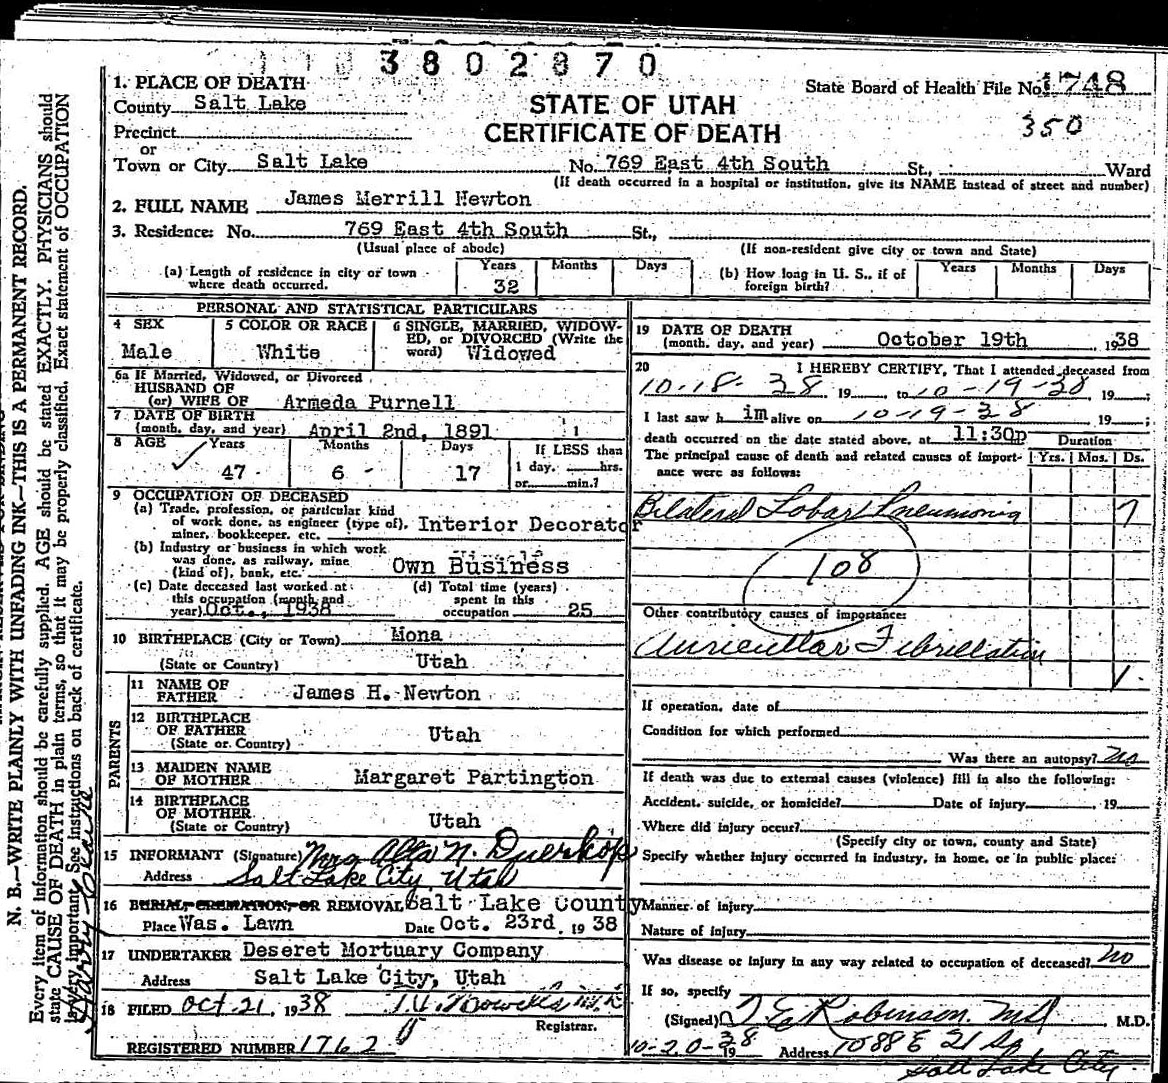 3802870
State Board of Health File No. 1748
350
STATE OF UTAH
CERTIFICATE OF DEATH
1. PLACE OF DEATH
County Salt Lake
Precinct
or
Town or City Salt Lake No. 769 East 4th South St., Ward
(If death occurred in a hospital or institution, give its NAME instead of street and number)
2. FULL NAME James Merrill Newton
3. Residence: No. 769 East 4th South St.,
(Usual place of abode) (If non-resident give city or town and State)
(a) Length of residence in city or town where death occurred. Years 32 Months Days
(b) How long in U. S., if of foreign birth? Years Months Days
PERSONAL AND STATISTICAL PARTICULARS
4 SEX Male
5 COLOR OR RACE White
6 SINGLE, MARRIED, WIDOWED, or DIVORCED (Write the word) Widowed
6a If Married, Widowed, or Divorced
HUSBAND OF
(or) WIFE OF Armeda Purnell
7 DATE OF BIRTH
(month, day, and year) April 2nd, 1891
8 AGE Years 47 Months 6 Days 17
If LESS than
1 day, hrs.
or min.?
9 OCCUPATION OF DECEASED
(a) Trade, profession, or particular kind
of work done, as engineer (type of),
miner, bookkeeper, etc. Interior Decorator
(b) Industry or business in which work
was done, as railway, mine
(kind of), bank, etc. Own Business
(c) Date deceased last worked at
this occupation (month and
year) Oct., 1938
(d) Total time (years)
spent in this
occupation 25
10 BIRTHPLACE (City or Town) Mona
(State or Country) Utah
PARENTS
11 NAME OF
FATHER James H. Newton
12 BIRTHPLACE
OF FATHER
(State or Country) Utah
13 MAIDEN NAME
OF MOTHER Margaret Partington
14 BIRTHPLACE
OF MOTHER
(State or Country) Utah
15 INFORMANT (Signature) Mrs Alta N. Duerkop
Address Salt Lake City, Utah
16 BURIAL, CREMATION, OR REMOVAL Salt Lake County
Place Was. Lawn Date Oct. 23rd, 1938
17 UNDERTAKER Deseret Mortuary Company
Address Salt Lake City, Utah
18 FILED Oct. 21, 1938
Registrar.
REGISTERED NUMBER 1762
19 DATE OF DEATH
(month, day, and year) October 19th 1938
20 I HEREBY CERTIFY, That I attended deceased from
10-18-38 19 , to 10-19-38 19 ;
I last saw h im alive on 10-19-38 19 ;
death occurred on the date stated above, at 11:30p
Duration
The principal cause of death and related causes of importance were as follows: Yrs. Mos. Ds.
Bilateral Lobar Pneumonia 7
108
Other contributory causes of importance:
Auricular Fibrillation 1
If operation, date of
Condition for which performed
Was there an autopsy? No
If death was due to external causes (violence) fill in also the following:
Accident, suicide, or homicide? Date of injury , 19
Where did injury occur?
(Specify city or town, county and State)
Specify whether injury occurred in industry, in home, or in public place:
Manner of injury
Nature of injury
Was disease or injury in any way related to occupation of deceased? no
If so, specify
(Signed) Robinson MD M.D.
10-20-38 19 Address 1088 E 21 So
Salt Lake City
N. B.—WRITE PLAINLY WITH UNFADING INK—THIS IS A PERMANENT RECORD.
Every item of information should be carefully supplied. AGE should be stated EXACTLY. PHYSICIANS should
state CAUSE OF DEATH in plain terms, so that it may be properly classified. Exact statement of OCCUPATION
is very important. See Instructions on back of certificate.